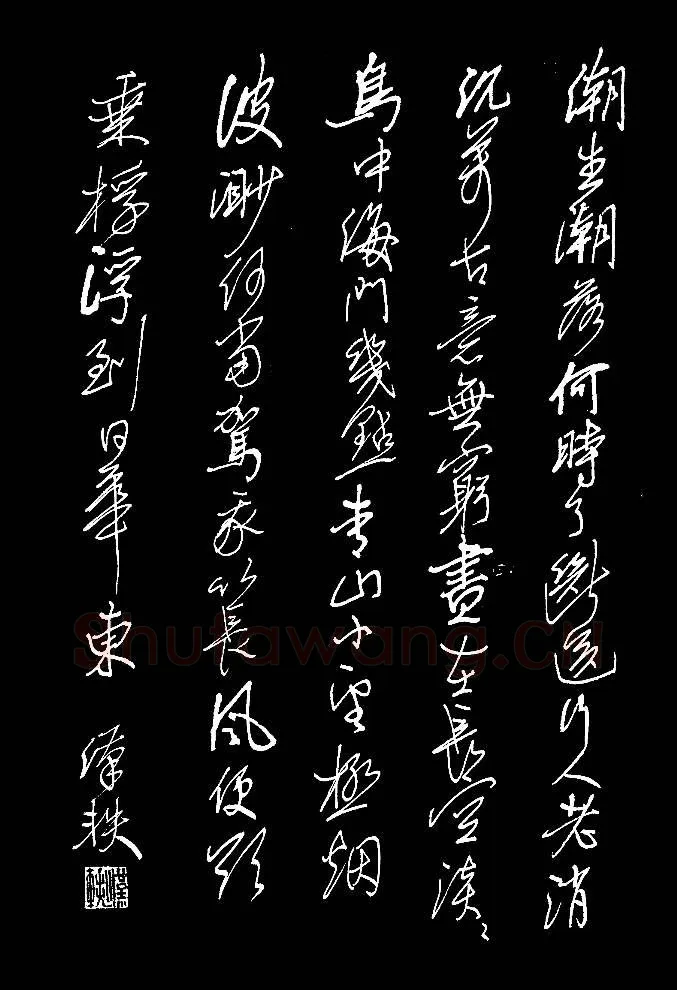 潮生潮落何時了斷送行人老消
沉萬古意無窮盡在長空淡淡
鳥中海門幾點青山小望極烟
波渺何當駕我以長風便欲
乘桴浮到日華東 漢軼
Shufawang.Cn